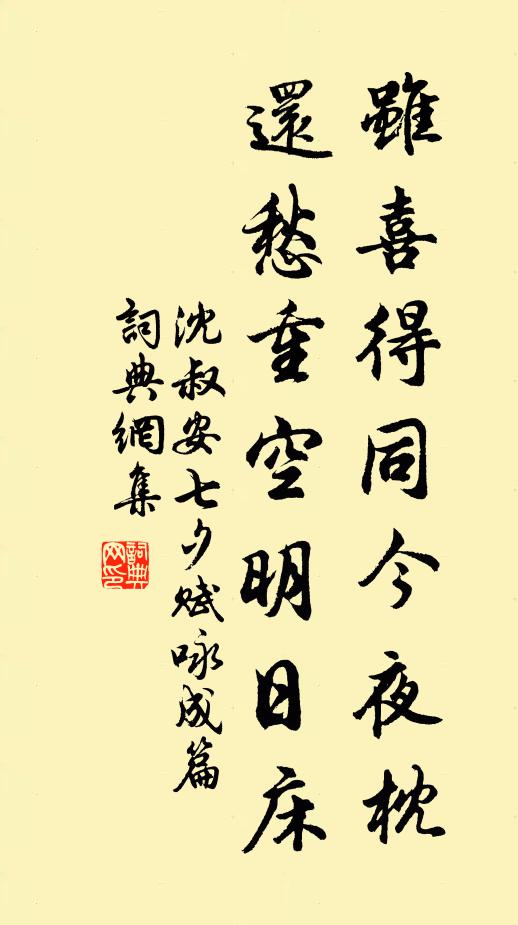 雖喜得同今夜枕
還愁重空明日床
沈叔安七夕賦咏成篇
詞典網集
詞典网印